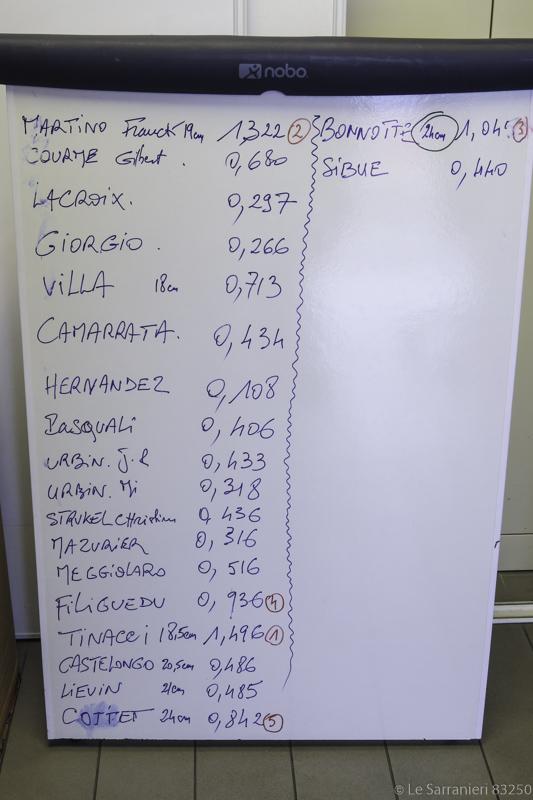 nobo
MARTINO Franck 19cm 1,322 2
COURME Gilbert . 0,680
LACROIX. 0,297
GIORGIO . 0,266
VILLA 18cm 0,713
CAMARRATA. 0,434
HERNANDEZ 0,108
PASQUALI 0,406
URBIN. J.R 0,433
URBIN. Mi 0,318
STRUKEL Christian 0,436
MAZURIER 0,316
MEGGIOLARO 0,516
FILIGUEDU 0,936 4
TINACCI 18,5cm 1,496 1
CASTELONGO 20,5cm 0,486
LIEVIN 21cm 0,485
COTTET 24cm 0,842 5
BONNOTTE 24cm 3
SIBUE 0,440
© Le Sarranieri 83250